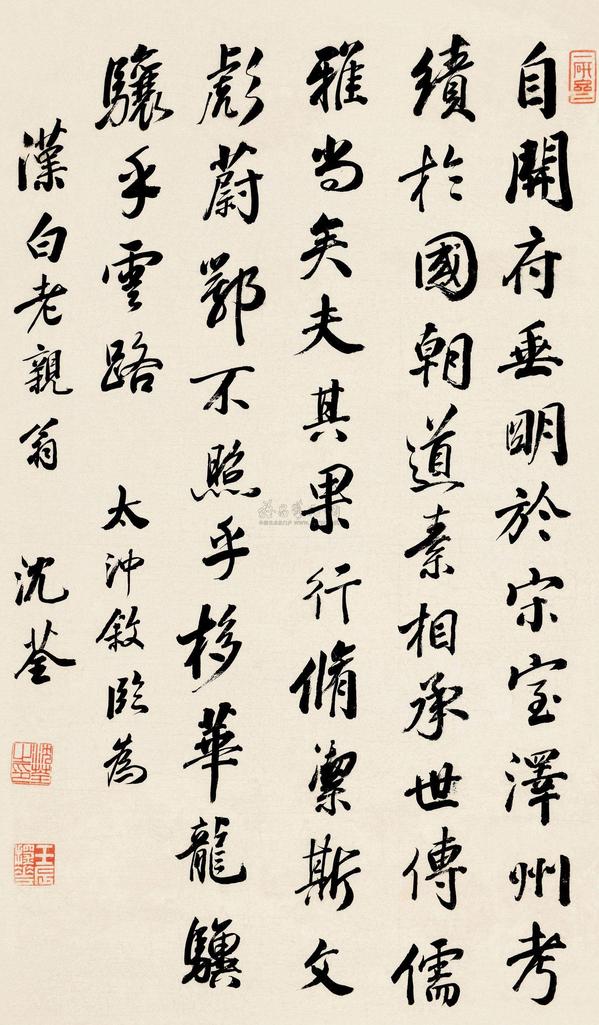 自開府垂明於宋室澤州考
績於國朝道素相承世傳儒
雅尚矣夫其果行脩潔斯文
彪蔚鄂不照乎移華龍驥
驤乎雲路 太沖敘臨為
漢白老親翁 沈荃
沈荃之印